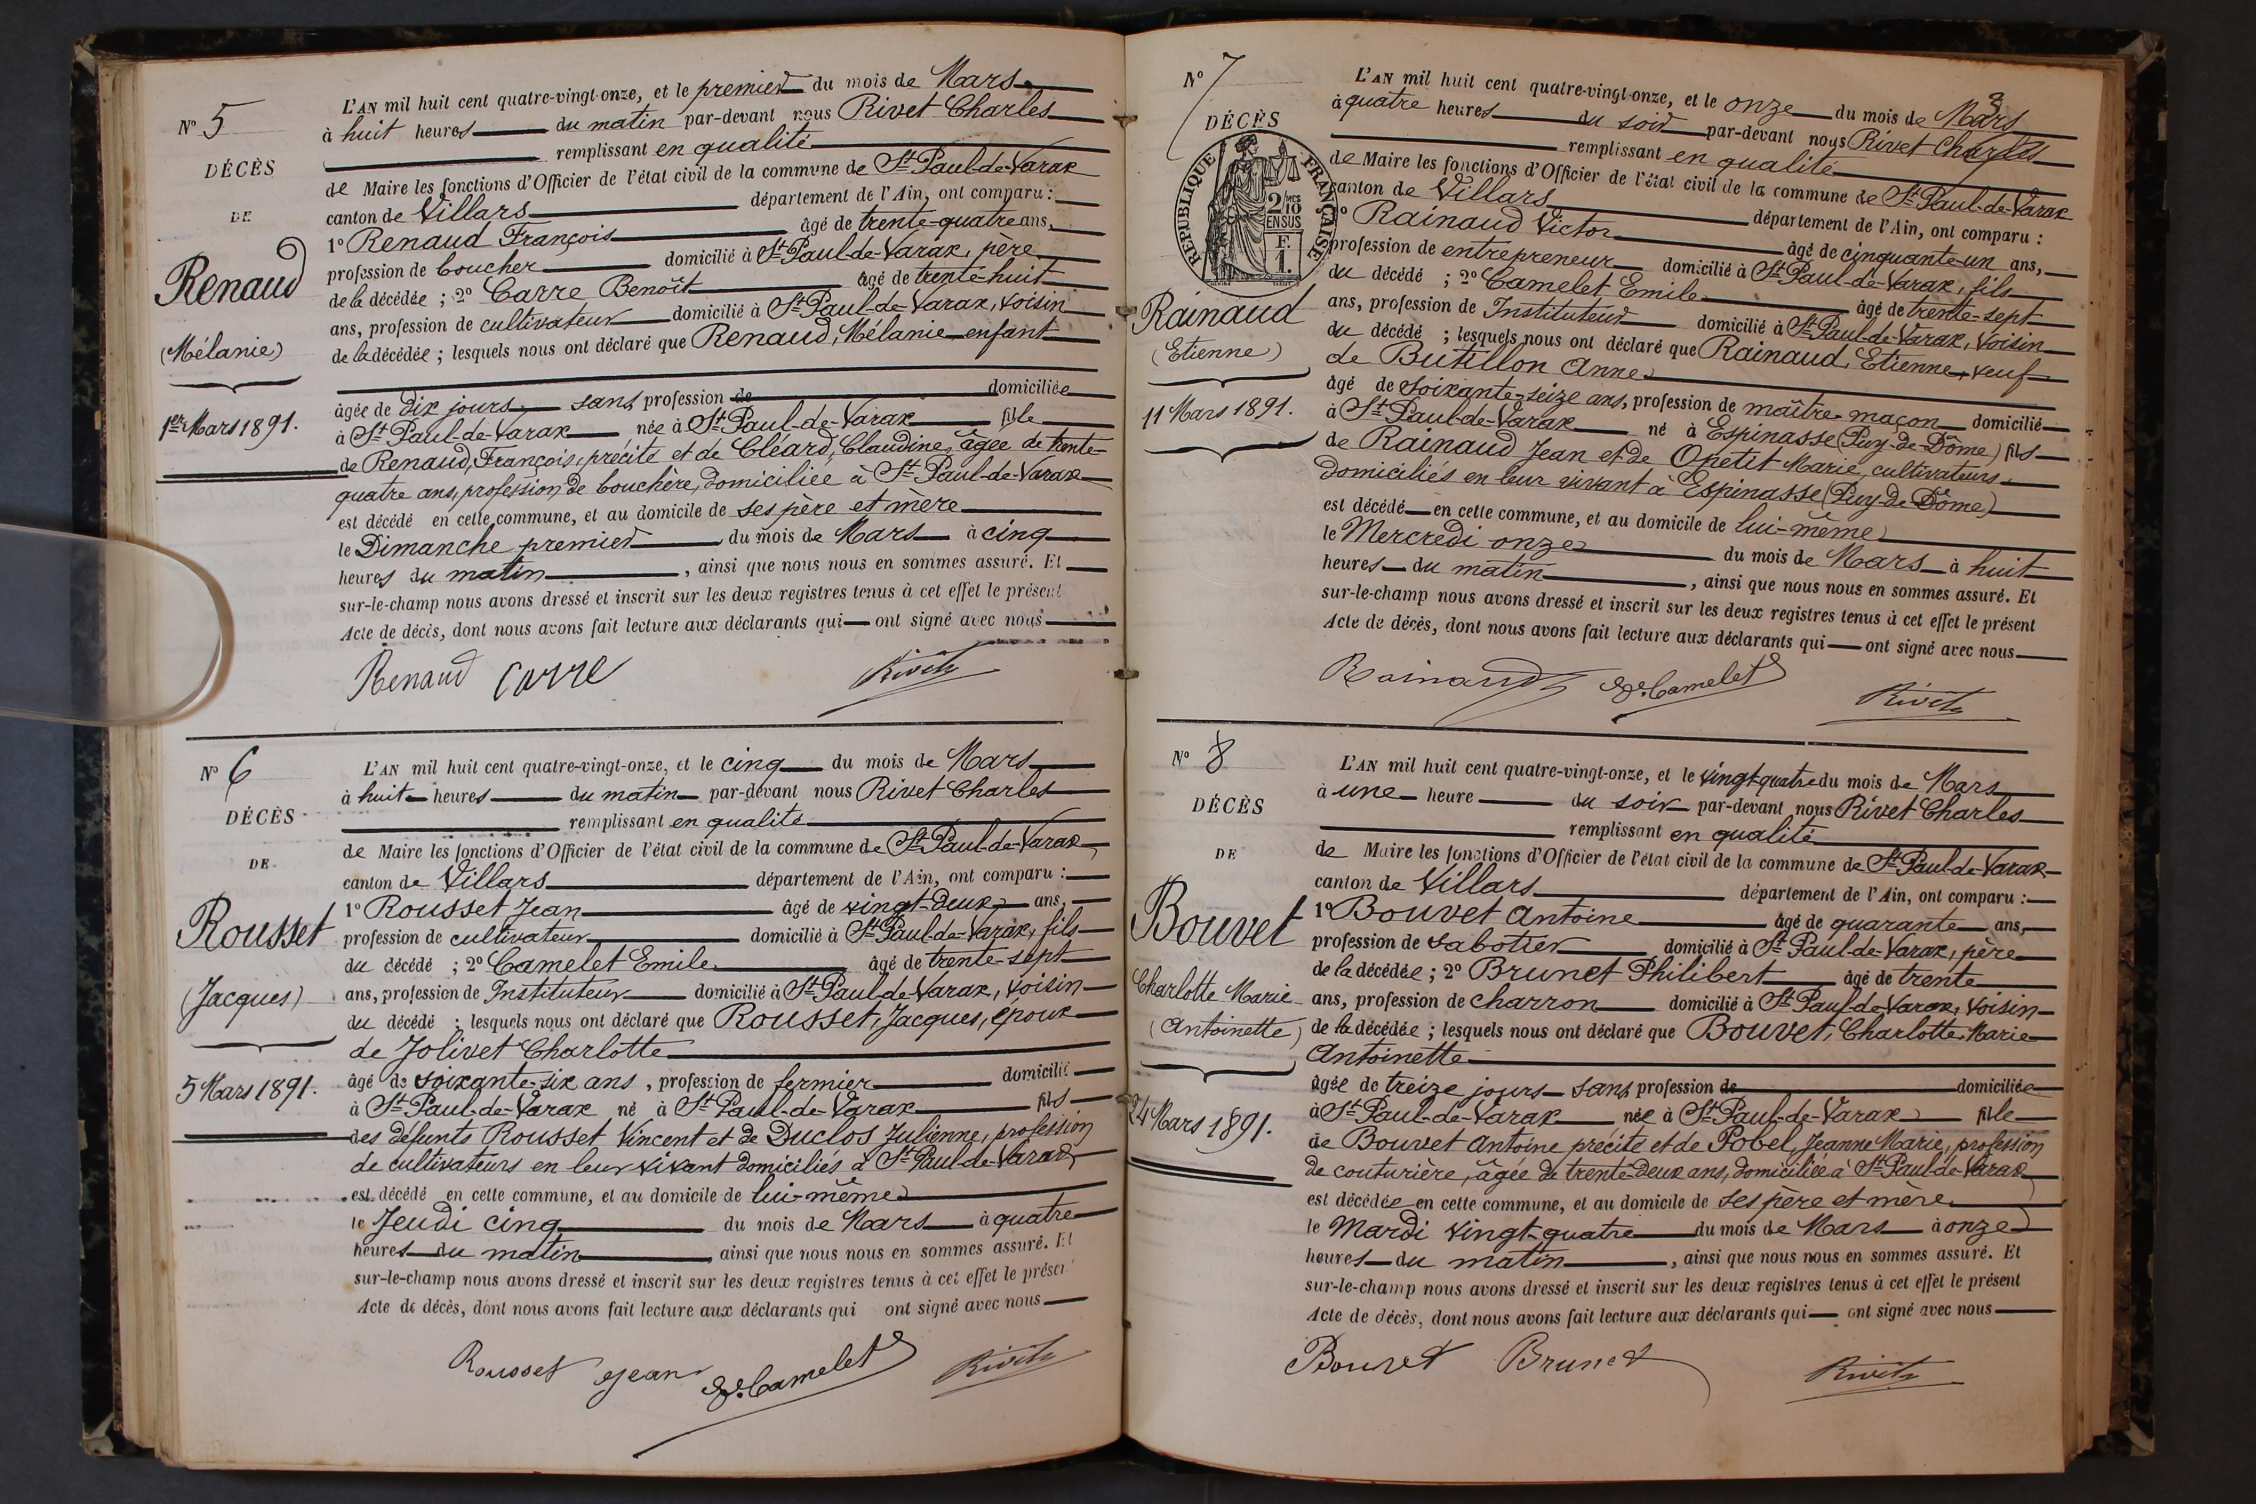 N° 5
DÉCÈS
DE
Renaud
(Mélanie)
1er Mars 1891.
L'AN mil huit cent quatre-vingt-onze, et le premier du mois de Mars
à huit heures du matin par-devant nous Rivet Charles
remplissant en qualité
de Maire les fonctions d'Officier de l'état civil de la commune de St Paul-de-Varax
canton de Villars département de l'Ain, ont comparu :
1° Renaud François âgé de trente-quatre ans,
profession de boucher domicilié à St Paul-de-Varax, père
de la décédée ; 2° Carre Benoît âgé de trente-huit
ans, profession de cultivateur domicilié à St Paul-de-Varax, voisin
de la décédée ; lesquels nous ont déclaré que Renaud, Mélanie enfant
âgée de dix jours sans profession de domiciliée
à St Paul-de-Varax née à St Paul-de-Varax fille
de Renaud, François, précité et de Cléard, Claudine, âgée de trente-
quatre ans, profession de bouchère, domiciliée à St Paul-de-Varax
est décédé en cette commune, et au domicile de ses père et mère
le Dimanche premier du mois de Mars à cinq
heures du matin, ainsi que nous nous en sommes assuré. Et
sur-le-champ nous avons dressé et inscrit sur les deux registres tenus à cet effet le présent
Acte de décès, dont nous avons fait lecture aux déclarants qui ont signé avec nous
Renaud Carre Rivet
N° 6
DÉCÈS
DE
Rousset
(Jacques)
5 Mars 1891.
L'AN mil huit cent quatre-vingt-onze, et le cinq du mois de Mars
à huit heures du matin par-devant nous Rivet Charles
remplissant en qualité
de Maire les fonctions d'Officier de l'état civil de la commune de St Paul-de-Varax
canton de Villars département de l'Ain, ont comparu :
1° Rousset Jean âgé de vingt-deux ans,
profession de cultivateur domicilié à St Paul-de-Varax, fils
du décédé ; 2° Camelet Emile âgé de trente-sept
ans, profession de Instituteur domicilié à St Paul-de-Varax, voisin
du décédé ; lesquels nous ont déclaré que Rousset, Jacques, époux
de Jolivet Charlotte
âgé de soixante-six ans, profession de fermier domicilié
à St Paul-de-Varax né à St Paul-de-Varax fils
des défunts Rousset Vincent et de Duclos Julienne, profession
de cultivateurs en leur vivant domiciliés à St Paul-de-Varax
est décédé en cette commune, et au domicile de lui-même
le Jeudi cinq du mois de Mars à quatre
heures du matin ainsi que nous nous en sommes assuré. Et
sur-le-champ nous avons dressé et inscrit sur les deux registres tenus à cet effet le présent
Acte de décès, dont nous avons fait lecture aux déclarants qui ont signé avec nous
Rousset Jean E. Camelet Rivet
N° 7
DÉCÈS
RÉPUBLIQUE FRANÇAISE
2/10 MES
EN SUS
F.
1.
Rainaud
(Etienne)
11 Mars 1891.
L'AN mil huit cent quatre-vingt-onze, et le onze du mois de Mars
à quatre heures du soir par-devant nous Rivet Charles
remplissant en qualité
de Maire les fonctions d'Officier de l'état civil de la commune de St Paul-de-Varax
canton de Villars département de l'Ain, ont comparu :
1° Rainaud Victor âgé de cinquante-un ans,
profession de entrepreneur domicilié à St Paul-de-Varax, fils
du décédé ; 2° Camelet Emile âgé de trente-sept
ans, profession de Instituteur domicilié à St Paul-de-Varax, voisin
du décédé ; lesquels nous ont déclaré que Rainaud, Etienne, veuf
de Butillon Anne
âgé de soixante-seize ans, profession de maître maçon domicilié
à St Paul-de-Varax né à Espinasse (Puy-de-Dôme) fils
de Rainaud Jean et de Opetit Marie, cultivateurs
domiciliés en leur vivant à Espinasse (Puy-de-Dôme)
est décédé en cette commune, et au domicile de lui-même
le Mercredi onze du mois de Mars à huit
heures du matin, ainsi que nous nous en sommes assuré. Et
sur-le-champ nous avons dressé et inscrit sur les deux registres tenus à cet effet le présent
Acte de décès, dont nous avons fait lecture aux déclarants qui ont signé avec nous
Rainaud E. Camelet Rivet
N° 8
DÉCÈS
DE
Bouvet
Charlotte Marie
(Antoinette)
24 Mars 1891.
L'AN mil huit cent quatre-vingt-onze, et le vingt-quatre du mois de Mars
à une heure du soir par-devant nous Rivet Charles
remplissant en qualité
de Maire les fonctions d'Officier de l'état civil de la commune de St Paul-de-Varax
canton de Villars département de l'Ain, ont comparu :
1° Bouvet Antoine âgé de quarante ans,
profession de sabotier domicilié à St Paul-de-Varax, père
de la décédée ; 2° Brunet Philibert âgé de trente
ans, profession de charron domicilié à St Paul-de-Varax, voisin
de la décédée ; lesquels nous ont déclaré que Bouvet, Charlotte Marie
Antoinette
âgée de treize jours sans profession de domiciliée
à St Paul-de-Varax née à St Paul-de-Varax fille
de Bouvet Antoine précité et de Pobel, Jeanne Marie, profession
de couturière, âgée de trente-deux ans, domiciliée à St Paul-de-Varax
est décédée en cette commune, et au domicile de ses père et mère
le Mardi vingt-quatre du mois de Mars à onze
heures du matin, ainsi que nous nous en sommes assuré. Et
sur-le-champ nous avons dressé et inscrit sur les deux registres tenus à cet effet le présent
Acte de décès, dont nous avons fait lecture aux déclarants qui ont signé avec nous
Bouvet Brunet Rivet